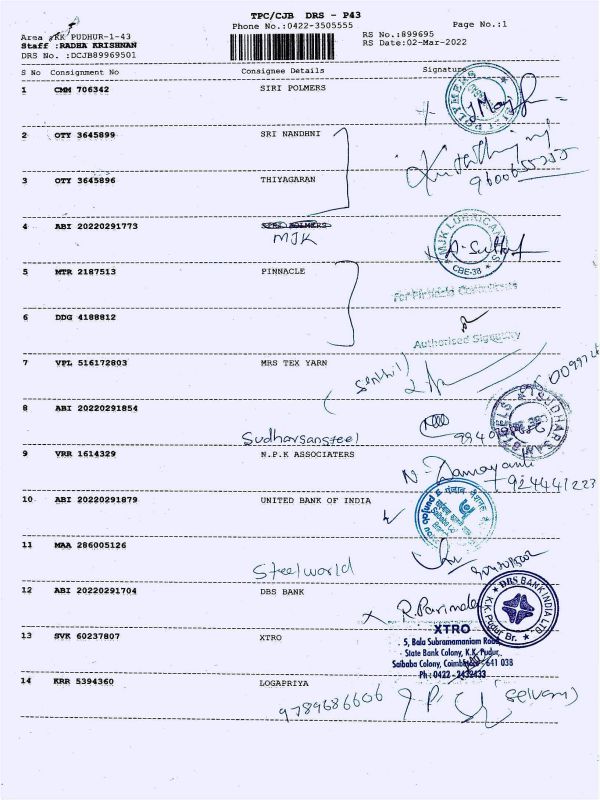 TPC/CJB DRS - P43
Phone No.:0422-3505555
Page No.:1
Area :KK PUDHUR-1-43
Staff :RADHA KRISHNAN
DRS No. :DCJB89969501
RS No.:899695
RS Date:02-Mar-2022
S No Consignment No Consignee Details Signature
1 CMM 706342 SIRI POLMERS
2 OTY 3645899 SRI NANDHNI
3 OTY 3645896 THIYAGARAN
9600655255
4 ABI 20220291773
MJK
MJK LUBRICANTS
CBE-38
5 MTR 2187513 PINNACLE
For Pinnacle Consultants
6 DDG 4188812
Authorised Signatory
7 VPL 516172803 MRS TEX YARN
Senthil
8 ABI 20220291854
Sudharsansteel
9 VRR 1614329 N.P.K ASSOCIATERS
N. Damayanti
924441223
10 ABI 20220291879 UNITED BANK OF INDIA
11 MAA 286005126
Steelworld
12 ABI 20220291704 DBS BANK
DBS BANK INDIA LTD
K.K. Pudur Br.
13 SVK 60237807 XTRO
XTRO
5, Bala Subramaniam Road,
State Bank Colony, K.K. Pudur,
Saibaba Colony, Coimbatore - 641 038
Ph : 0422 - 2432433
14 KRR 5394360 LOGAPRIYA
9789686606
(Selvam)